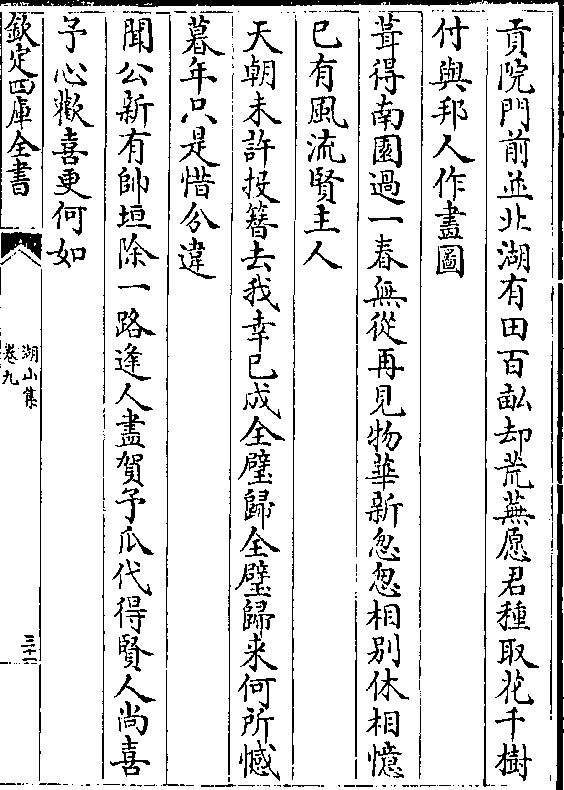 貢院門前並北湖有田百畝却荒蕪愿君種取花千樹
付與邦人作畫圖
葺得南園過一春無從再見物華新忽忽相别休相憶
已有風流賢主人
天朝未許投簮去我幸已成全璧歸全璧歸来何所憾
暮年只是惜分違
聞公新有帥垣除一路逢人盡賀予瓜代得賢人尚喜
予心歡喜更何如
欽定四庫全書
湖山集
卷九
三十二